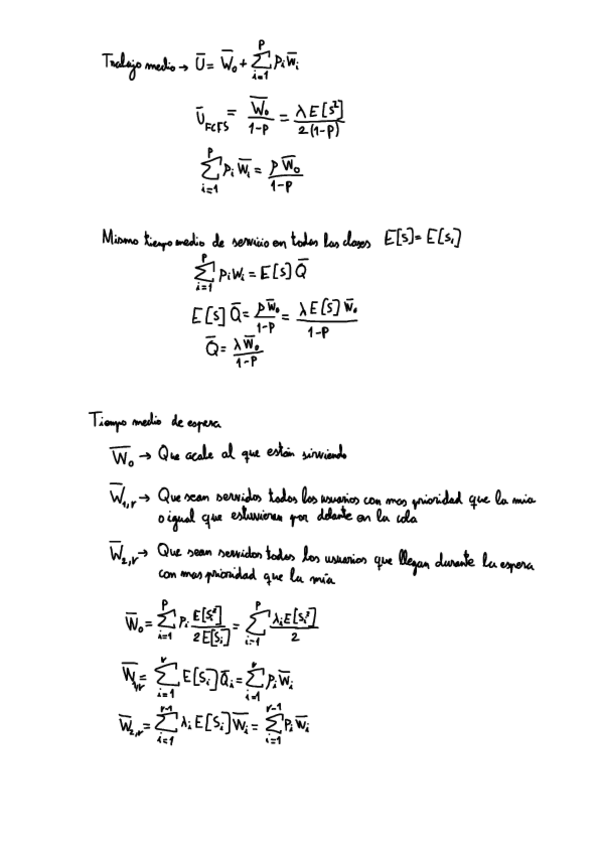 Trabajo medio → Ū = W̄₀ + ∑_{i=1}^{P} ρᵢ W̄ᵢ
Ū_FCFS = W̄₀/(1-ρ) = λE[s²]/(2(1-ρ))
∑_{i=1}^{P} ρᵢ W̄ᵢ = ρW̄₀/(1-ρ)
Mismo tiempo medio de servicio en todas las clases E[s] = E[sᵢ]
∑_{i=1}^{P} ρᵢ Wᵢ = E[s] Q̄
E[s] Q̄ = ρW̄₀/(1-ρ) = λE[s]W̄₀/(1-ρ)
Q̄ = λW̄₀/(1-ρ)
Tiempo medio de espera
W̄₀ → Que acabe al que están sirviendo
W̄₁,ᵣ → Que sean servidos todos los usuarios con mas prioridad que la mia
o igual que estuvieran por delante en la cola
W̄₂,ᵣ → Que sean servidos todos los usuarios que llegan durante la espera
con mas prioridad que la mía
W̄₀ = ∑_{i=1}^{P} ρᵢ E[sᵢ²]/(2E[sᵢ]) = ∑_{i=1}^{P} λᵢE[sᵢ²]/2
W̄₁,ᵣ = ∑_{i=1}^{r} E[sᵢ]Q̄ᵢ = ∑_{i=1}^{r} ρᵢ W̄ᵢ
W̄₂,ᵣ = ∑_{i=1}^{r-1} λᵢ E[sᵢ] W̄ᵢ = ∑_{i=1}^{r-1} ρᵢ W̄ᵢ